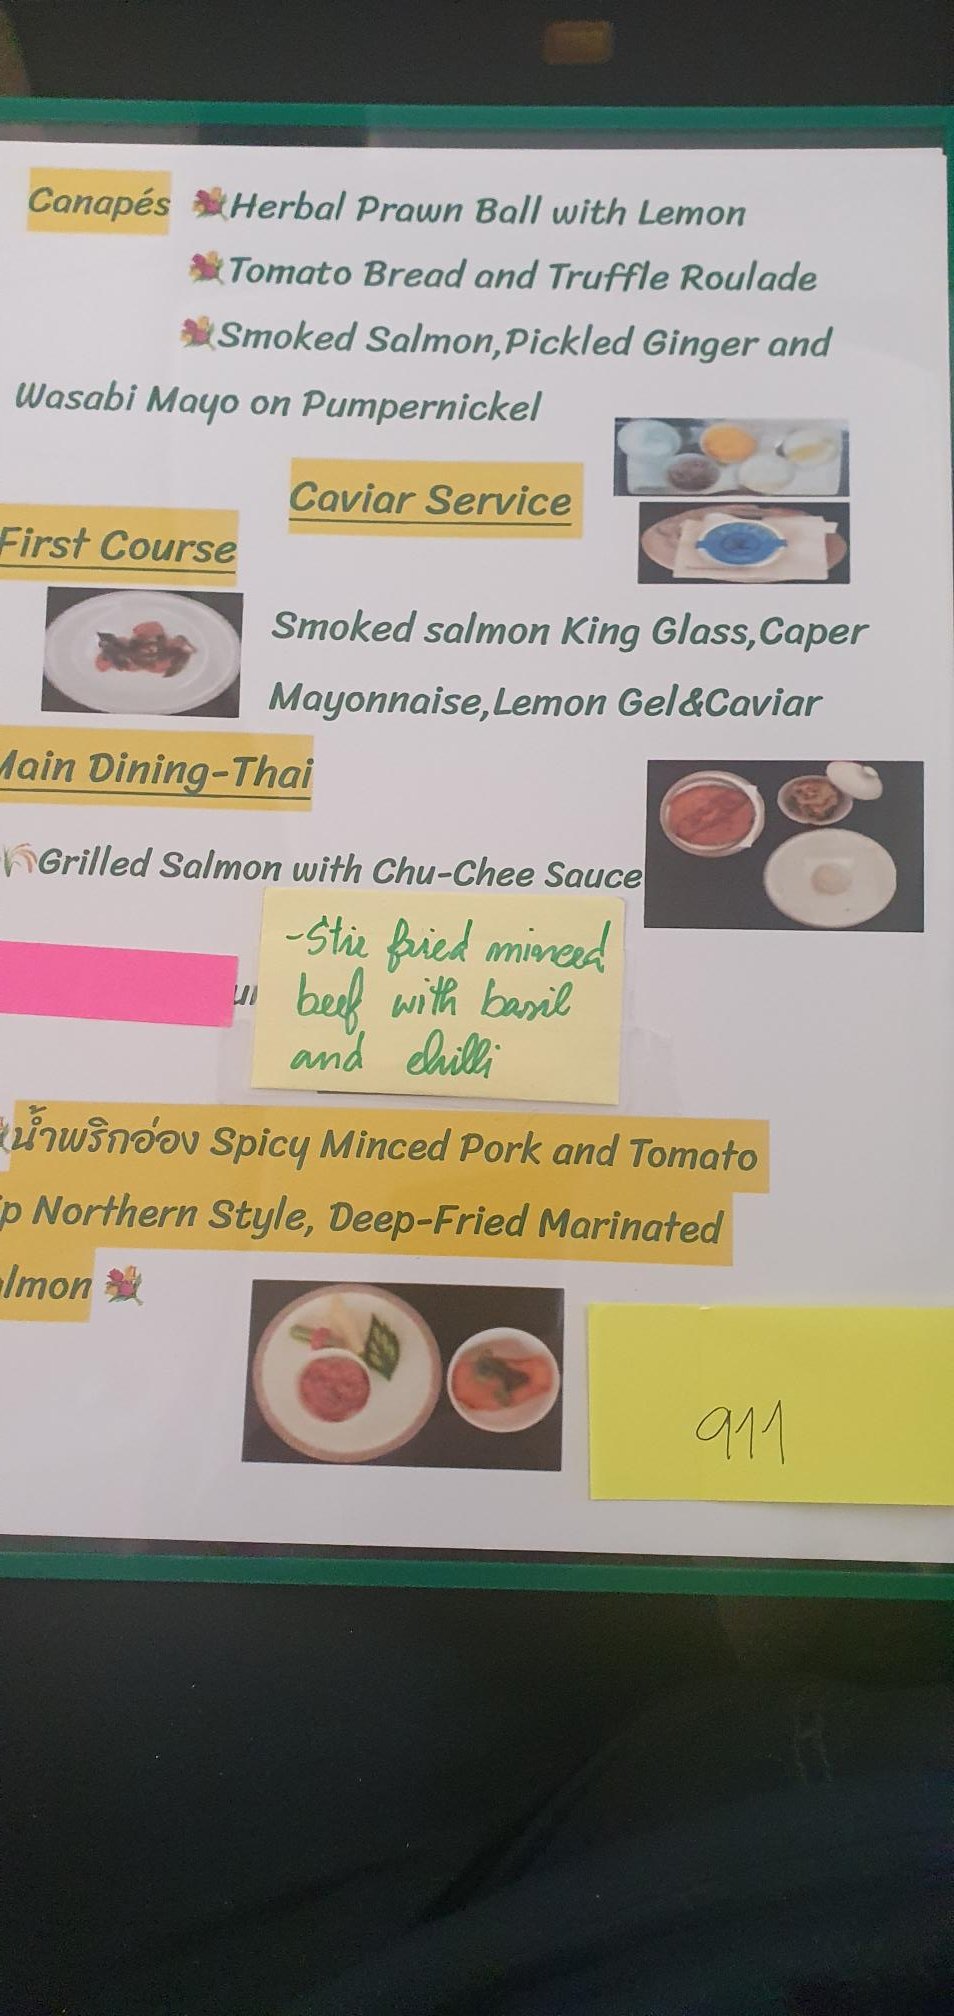 Canapés Herbal Prawn Ball with Lemon
Tomato Bread and Truffle Roulade
Smoked Salmon,Pickled Ginger and
Wasabi Mayo on Pumpernickel
Caviar Service
First Course
Smoked salmon King Glass,Caper
Mayonnaise,Lemon Gel&Caviar
Main Dining-Thai
Grilled Salmon with Chu-Chee Sauce
-Stir fried minced
beef with basil
and chilli
น้ำพริกอ่อง Spicy Minced Pork and Tomato
ip Northern Style, Deep-Fried Marinated
almon
911